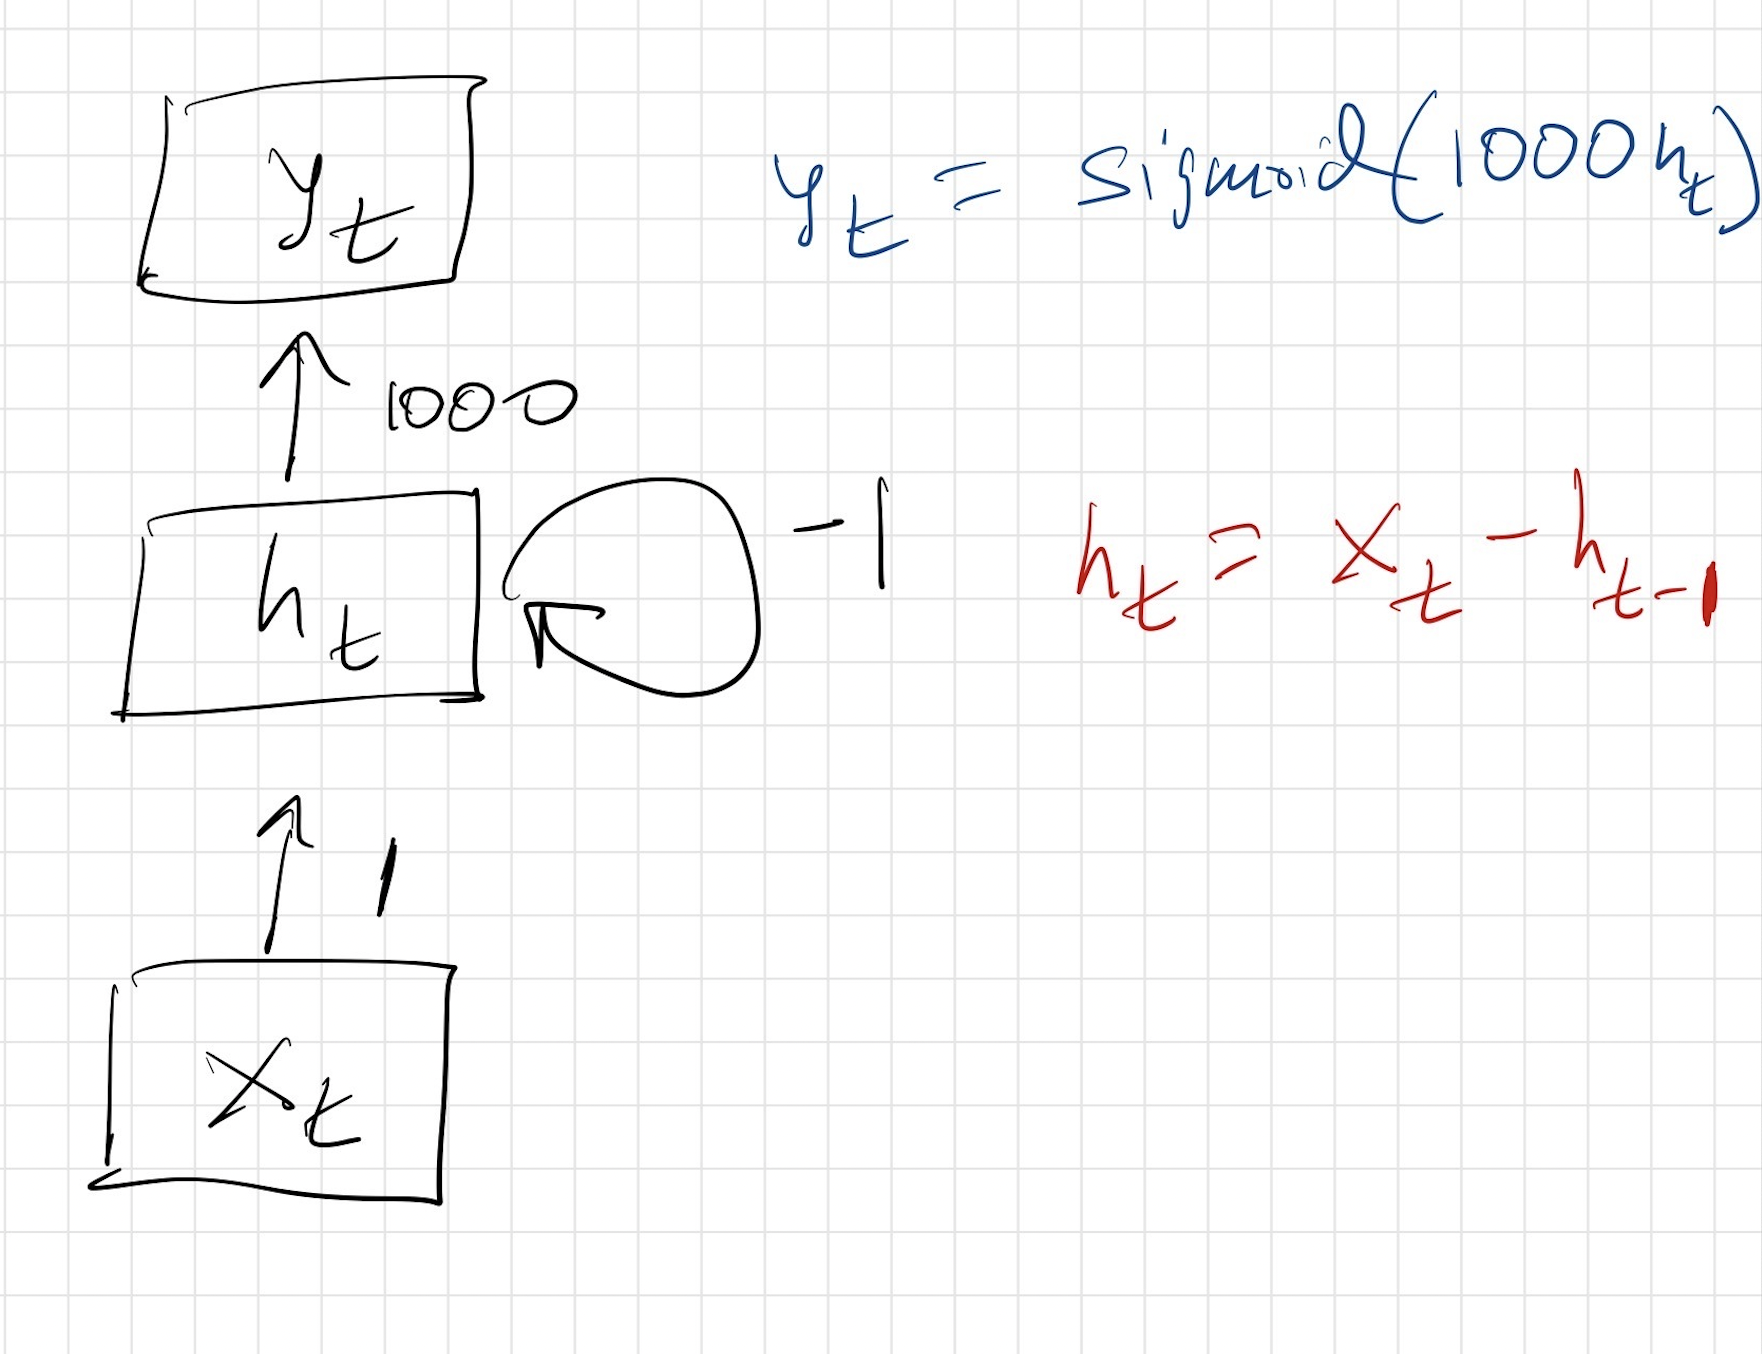 y_t
y_t = sigmoid(1000 h_t)
1000
h_t
-1
h_t = x_t - h_{t-1}
1
x_t